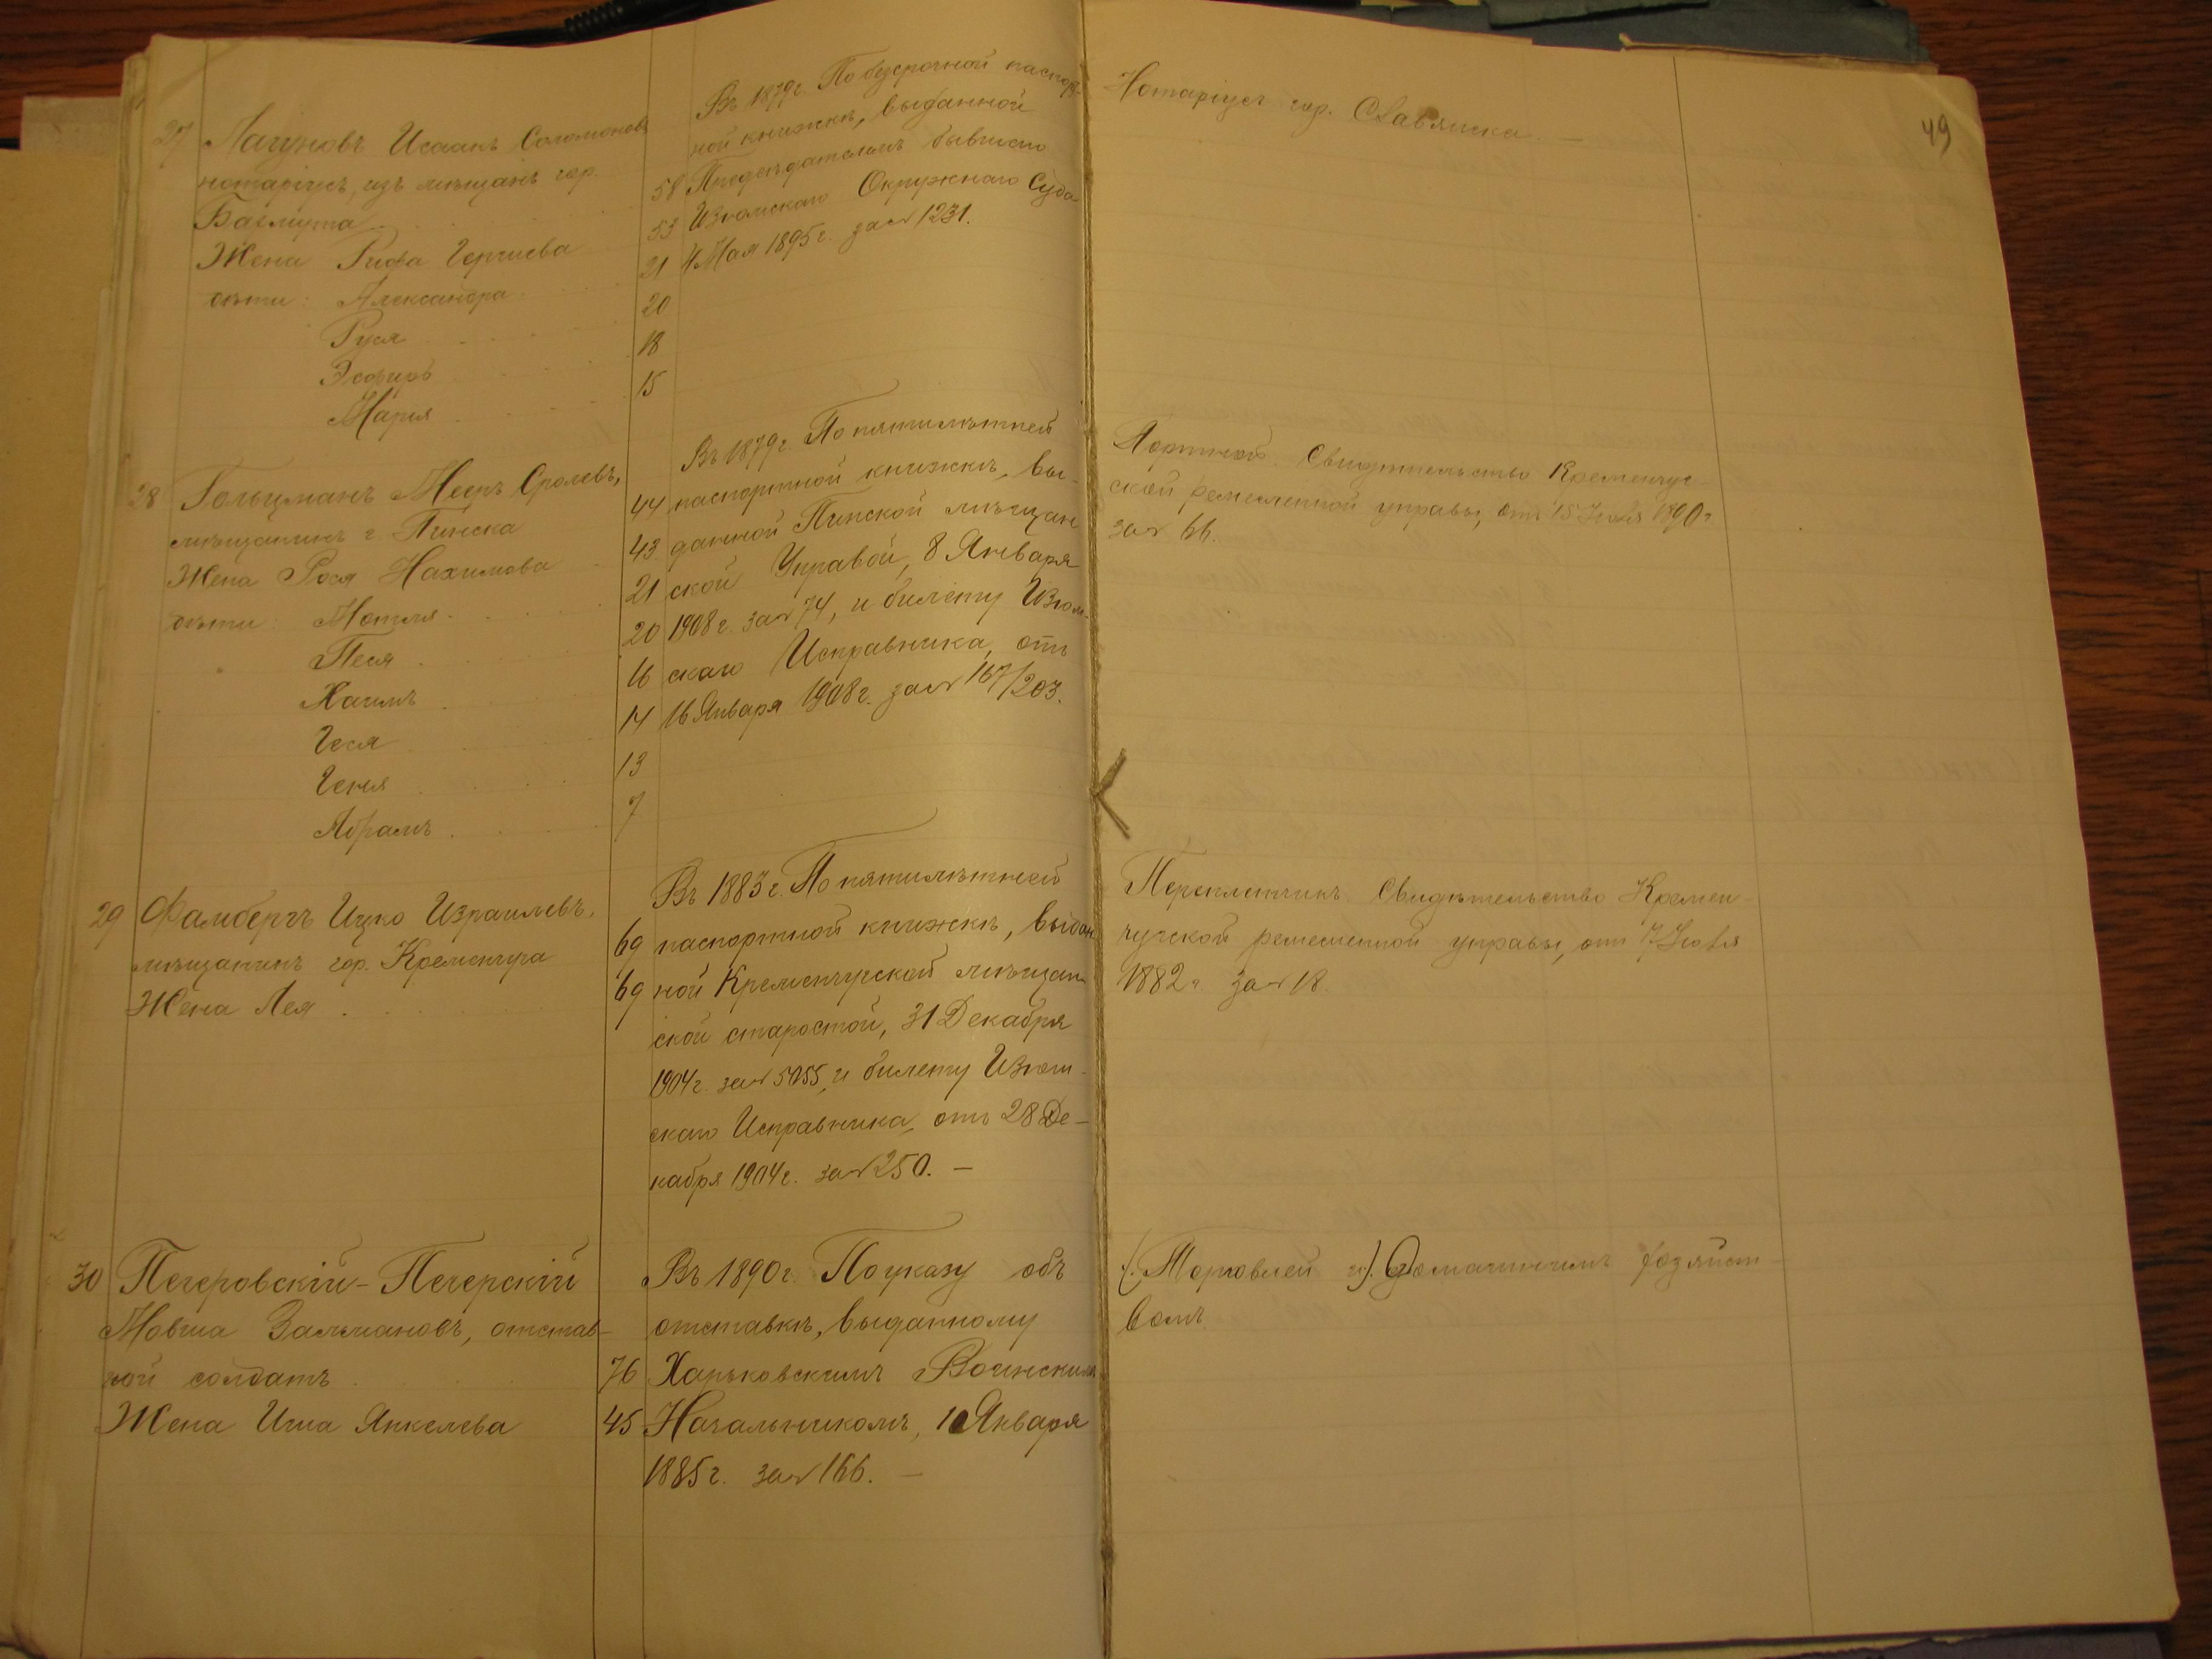 49
27 Лагуновъ Исаакъ Соломоновъ
нотаріусъ, изъ мѣщанъ гор.
58
Жена Рифа Герчиева 53
дѣти: Александра 21
Руся 20
18
Марія 15
Въ 1879 г. По безсрочной паспорт-
ной книжкѣ, выданной
Предсѣдателемъ бывшаго
Изюмскаго Окружнаго Суда
4 Мая 1895 г. за № 1231.
Нотаріусъ гор. Славянска —
28 Гольцманъ Мееръ Сролевъ, 44
мѣщанинъ г. Пинска
Жена Рося Нахимова 43
дѣти: Мотля 21
Песя 20
Хаимъ 16
Геся 14
Геня 13
Абрамъ 7
Въ 1879 г. По пятилѣтней
паспортной книжкѣ, вы-
данной Пинской мѣщан
ской Управой, 8 Января
1908 г. за № 74, и билету Изюм-
скаго Исправника, отъ
16 Января 1908 г. за № 167/203.
Портной. Свидѣтельство Кременчуг-
ской ремесленной управы, отъ 15 1890 г.
за № 66.
29 Фамбергъ Ицко Израилевъ, 69
мѣщанинъ гор. Кременчуга
Жена Лея 69
Въ 1883 г. По пятилѣтней
паспортной книжкѣ, выдан
ной Кременчугской мѣщан
ской старостой, 31 Декабря
1904 г. за № 5055, и билету Изюм-
скаго Исправника, отъ 28 Де-
кабря 1904 г. за № 250. —
Переплетчикъ. Свидѣтельство Кремен-
чугской ремесленной управы, отъ 7
1882 г. за № 18.
30 Печеровскій-Печерскій
Мовша Зальмановъ, отстав-
ной солдатъ 76
Жена Игна Янкелева 45
Въ 1890 г. По указу объ
отставкѣ, выданному
Харьковскимъ Воинскимъ
Начальникомъ, 10 Января
1885 г. за № 166. —
Торговлей и домашнимъ хозяйст-
вомъ.